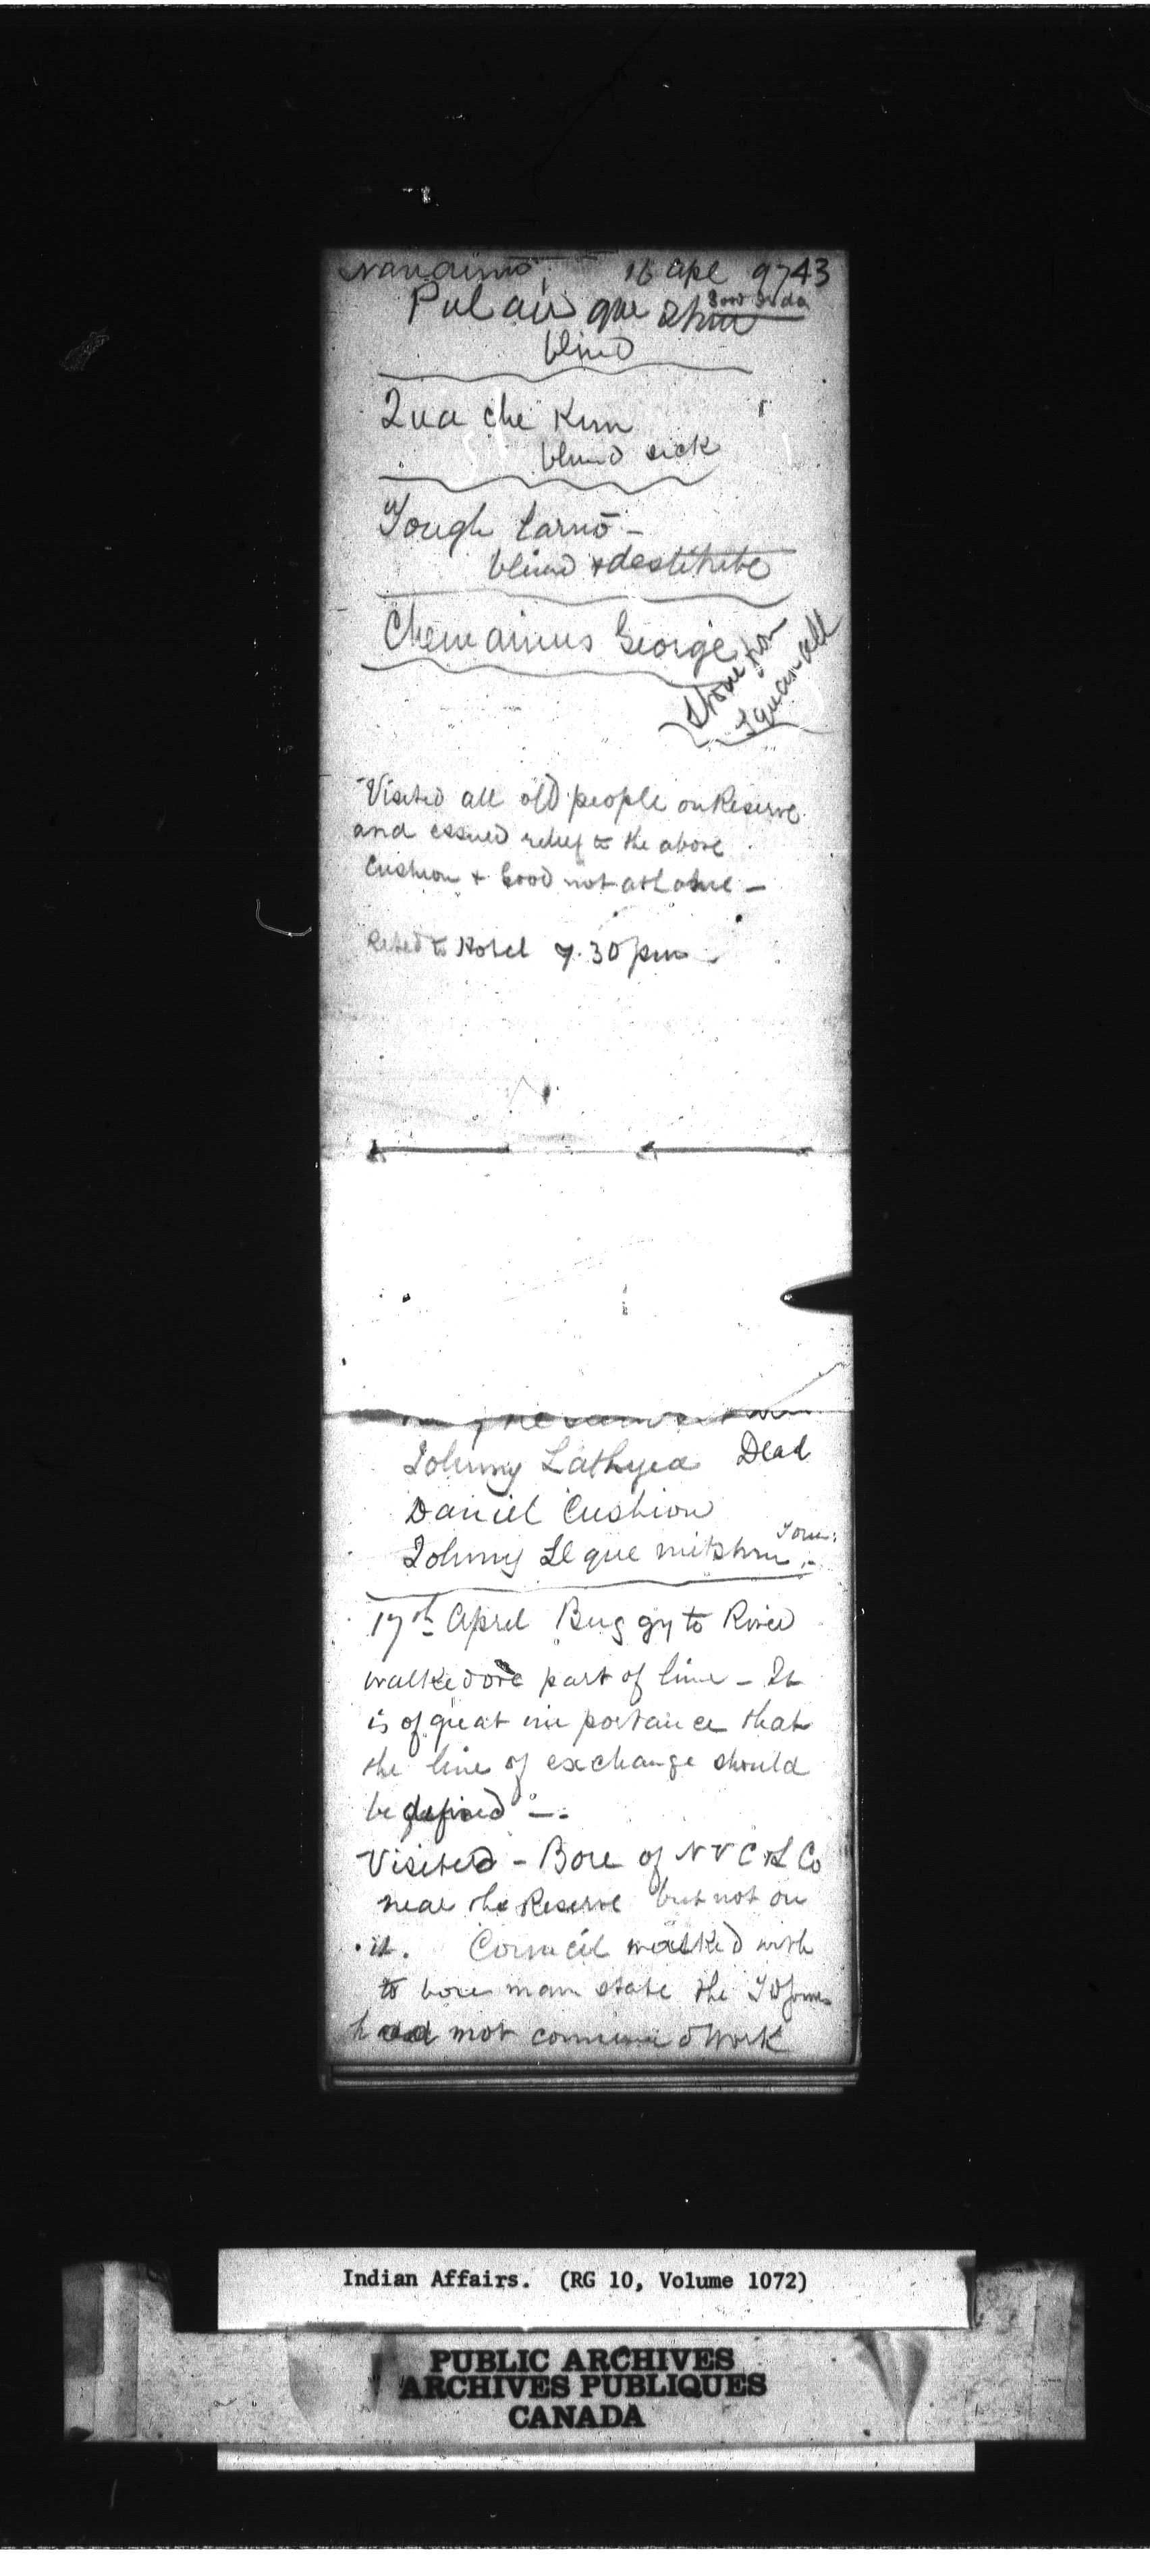 Nanaimo, 16 Apl 9743
Pul
blind
Qua che Kum
blind sick
Yough tarno -
blind & destitute
Chemainus George
Visited all old people on Reserve
and issued relief to the above
Cushion & Good not at home -
Retd to Hotel 7.30 pm -
Johnny Dead
Daniel Cushion
Johnny
17th April Buggy to River
walked over part of line - It
is of great importance that
the line of exchange should
be defined -
Visited - Bore of N V C & L Co
near the Reserve but not on
it. Council walked with
to bore man state the
had not commenced work
Indian Affairs. (RG 10, Volume 1072)
PUBLIC ARCHIVES
ARCHIVES PUBLIQUES
CANADA